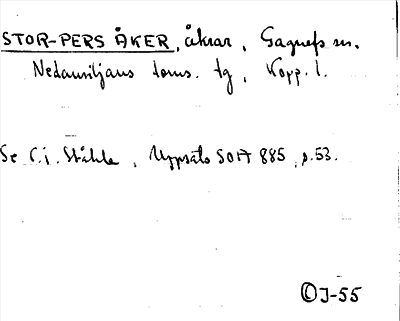 STOR-PERS ÅKER, åkrar, Gagnefs sn.
Nedansiljans doms. tg, Kopp. l.
Se C.I. Ståhle, Uppsats SOH 885, p. 53.
© J-55